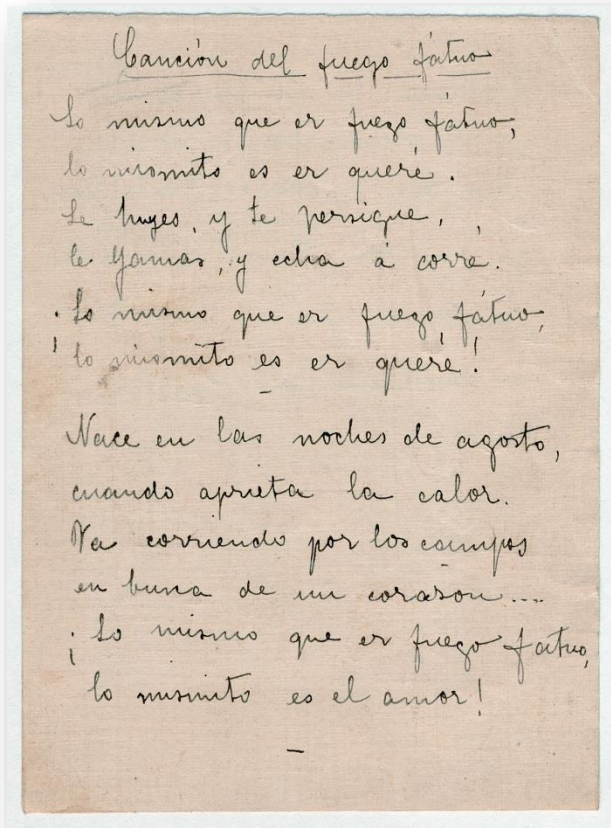 Canción del fuego fátuo
Lo mismo que er fuego fátuo,
lo mismito es er queré.
Le huyes, y te persigue,
le yamas, y echa á corré.
¡Lo mismo que er fuego fátuo,
lo mismito es er queré!
Nace en las noches de agosto,
cuando aprieta la calor.
Va corriendo por los campos
en busca de un corasón....
¡Lo mismo que er fuego fatuo,
lo mismito es el amor!